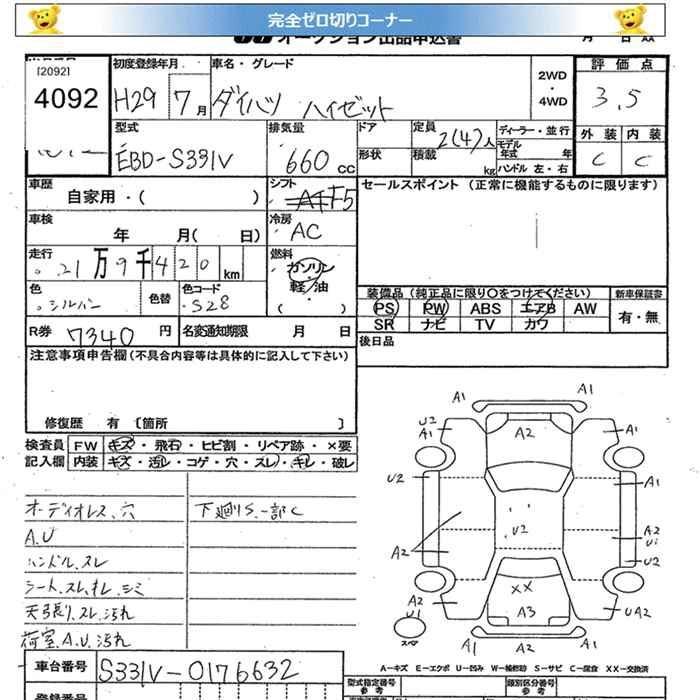 完全ゼロ切りコーナー
オークション出品申込書
月 日 XX
[2092]
4092
初度登録年月
H29 7月
車名・グレード
ダイハツ ハイゼット
2WD
・
4WD
評価点
3.5
外装 内装
C C
型式
EBD-S331V
排気量
660 CC
ドア
形状
定員 2(4)人
積載 kg
ディーラー・並行
モデル年式 年
ハンドル 左・右
車歴
自家用・( )
シフト
F5
セールスポイント (正常に機能するものに限ります)
車検
年 月( 日)
冷房
AC
走行
21万9千420km
燃料
ガソリン
軽/油
( )
色
シルバー
色替
色コード
S28
装備品 (純正品に限り○をつけてください)
PS PW ABS エアB AW
SR ナビ TV カワ
新車保証書
有・無
R券 7340円
名変通知期限 月 日
後日品
注意事項申告欄(不具合内容等は具体的に記入して下さい)
修復歴 有 〔箇所 〕
検査員記入欄
FW キズ・飛石・ヒビ割・リペア跡・×要
内装 キズ・汚レ・コゲ・穴・スレ・キレ・破レ
オーディオレス、穴
A.U
ハンドル、スレ
シート、スレ、キレ、シミ
天張り、スレ、汚れ
荷室、A.U、汚れ
下廻りS、一部C
A1 A1
U2
A1 A2 A1
U2 A1
U2
A2 A2
U1
U2
XX
A2
U1 A3 UA2
スペア
A1 A1
A-キズ E-エクボ U-凹み W-補修跡 S-サビ C-腐食 XX-交換済
車台番号 S331V-0176632
登録番号
型式指定番号
参考
類別区分番号
参考